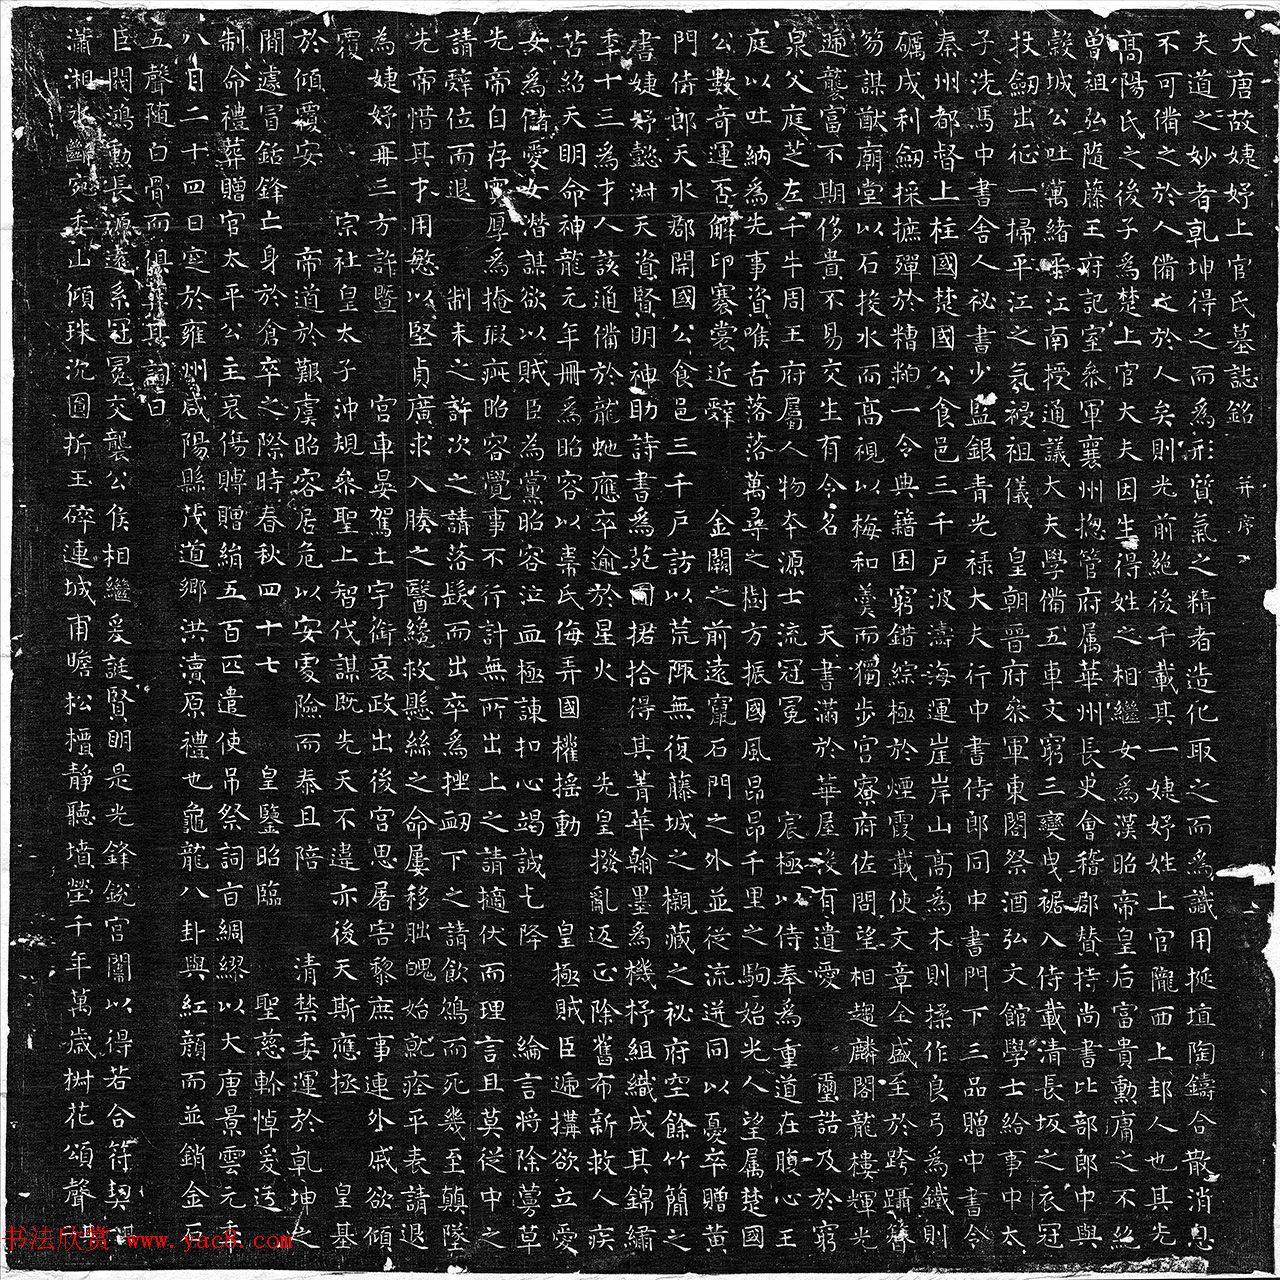 大唐故婕妤上官氏墓誌銘 并序
夫道之妙者乾坤得之而爲形質氣之精者造化取之而爲識用挻埴陶鑄合散消息
不可備之於人備之於人矣則光前絕後千載其一婕妤姓上官隴西上邽人也其先
高陽氏之後子爲楚上官大夫因生得姓之相繼女爲漢昭帝皇后富貴勳庸之不絕
曾祖弘隨藤王府記室參軍襄州揔管府属華州長史會稽郡贊持尚書比部郎中與
糓城公吐萬緒平江南授通議大夫學備五車文窮三變曳裾入侍載清長坂之衣冠
杖劒出征一掃平江之氛祲祖儀 皇朝晉府參軍東閤祭酒弘文館學士給事中太
子洗馬中書舍人祕書少監銀青光祿大夫行中書侍郎同中書門下三品贈中書令
秦州都督上柱國楚國公食邑三千戶波濤海運崖岸山高為木則揉作良弓爲鐵則
礪成利劒採摭殫於糟粕一令典籍困窮錯綜極於煙霞載使文章全盛至於跨躡簪
笏謀猷廟堂以石投水而高視以梅和羹而獨步宮寮府佐問望相趨麟閣龍樓輝光
遞襲富不期侈貴不易交生有令名 天書滿於華屋沒有遺愛 璽誥及於窮
泉父庭芝左千牛周王府屬人物本源士流冠冕 宸極以侍奉爲重道在腹心王
庭以吐納爲先事資喉舌落落萬尋之樹方振國風昂昂千里之駒始光人望属楚國
公數奇運否解印褰裳近辭 金闕之前遠竄石門之外並從流迸同以憂卒贈黃
門侍郎天水郡開國公食邑三千戶訪以荒陬無復藤城之櫬藏之祕府空餘竹簡之
書婕妤懿淑天資賢明神助詩書爲苑囿捃拾得其菁華翰墨爲機杼組織成其錦繡
年十三為才人該通備於龍虵應卒逾於星火 先皇撥亂返正除舊布新救人疾
苦紹天明命神龍元年冊爲昭容以韋氏侮弄國權搖動 皇極賊臣遞搆欲立愛
女爲儲愛女潛謀欲以賊臣為黨昭容泣血極諫扣心竭誠乞降 綸言將除蔓草
先帝自存寬厚為掩瑕疵昭容覺事不行計無所出上之請擿伏而理言且莫從中之
請辭位而退 制未之許次之請落髮而出卒爲挫衂下之請飲鴆而死幾至顛墜
先帝惜其才用慜以堅貞廣求入腠之醫纔救懸絲之命屢移朏魄始就痊平表請退
為婕妤再三方許暨 宮車晏駕土宇銜哀政出後宮思屠害黎庶事連外戚欲傾
覆 宗社皇太子沖規參聖上智伐謀既先天不違亦後天斯應拯 皇基
於傾覆安 帝道於艱虞昭容居危以安處險而泰且陪 清禁委運於乾坤之
間遽冒銛鋒亡身於倉卒之際時春秋四十七 皇鑒昭臨 聖慈軫悼爰造
制命禮葬贈官太平公主哀傷賻贈絹五百匹遣使吊祭詞旨綢繆以大唐景雲元年
八月二十四日窆於雍州咸陽縣茂道鄉洪瀆原禮也龜龍八卦與紅顏而並銷金石
五聲隨白骨而俱葬其詞曰
巨閥鴻勳長源遠系冠冕交襲公侯相繼爰誕賢明是光鋒銳宮闈以得若合符契
瀟湘水斷宛委山傾珠沉圓折玉碎連城甫瞻松檟靜聽墳塋千年萬歲椒花頌聲
书法欣赏 www.yac8.com